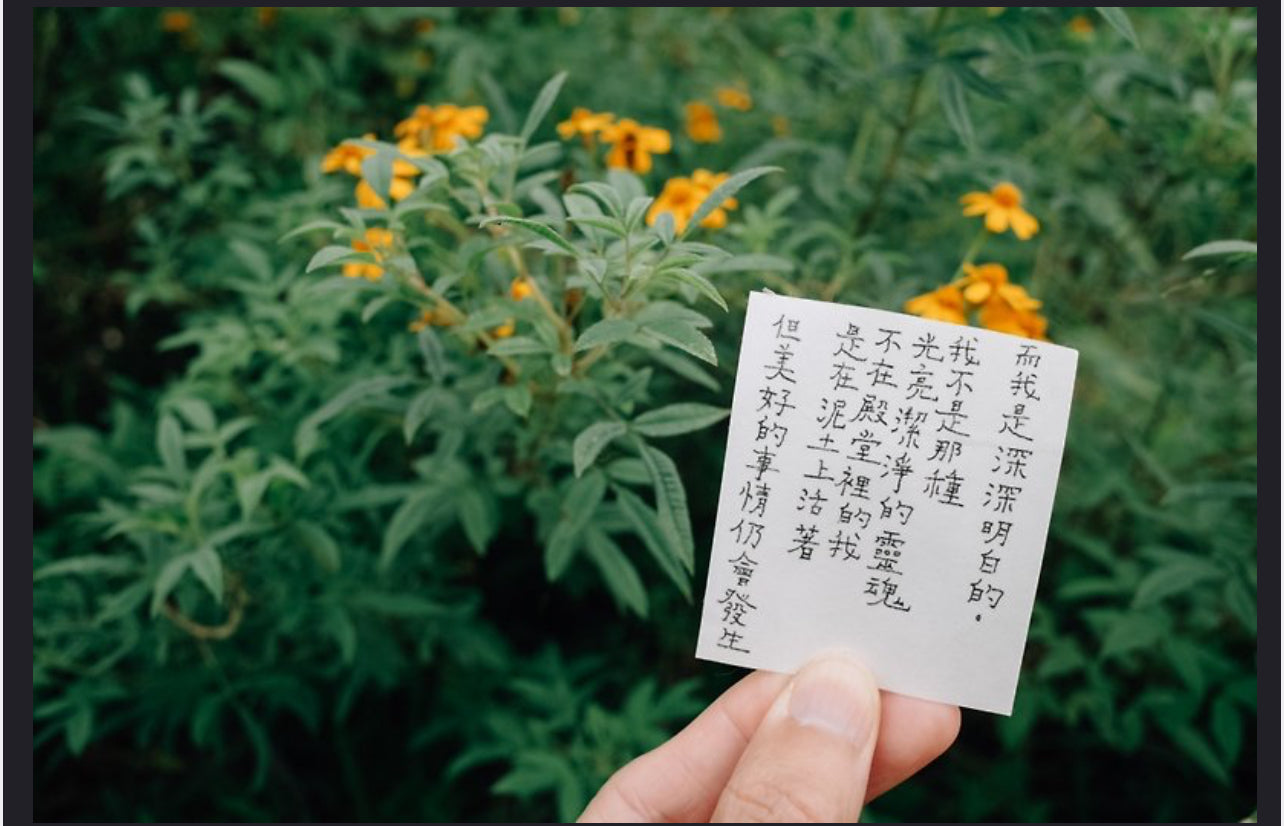 而我是深深明白的.
我不是那種
光亮潔淨的靈魂
不在殿堂裡的我
是在泥土上活著
但美好的事情仍會發生